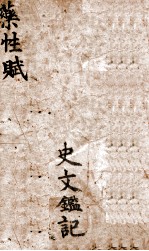 藥性賦
史文鑑記